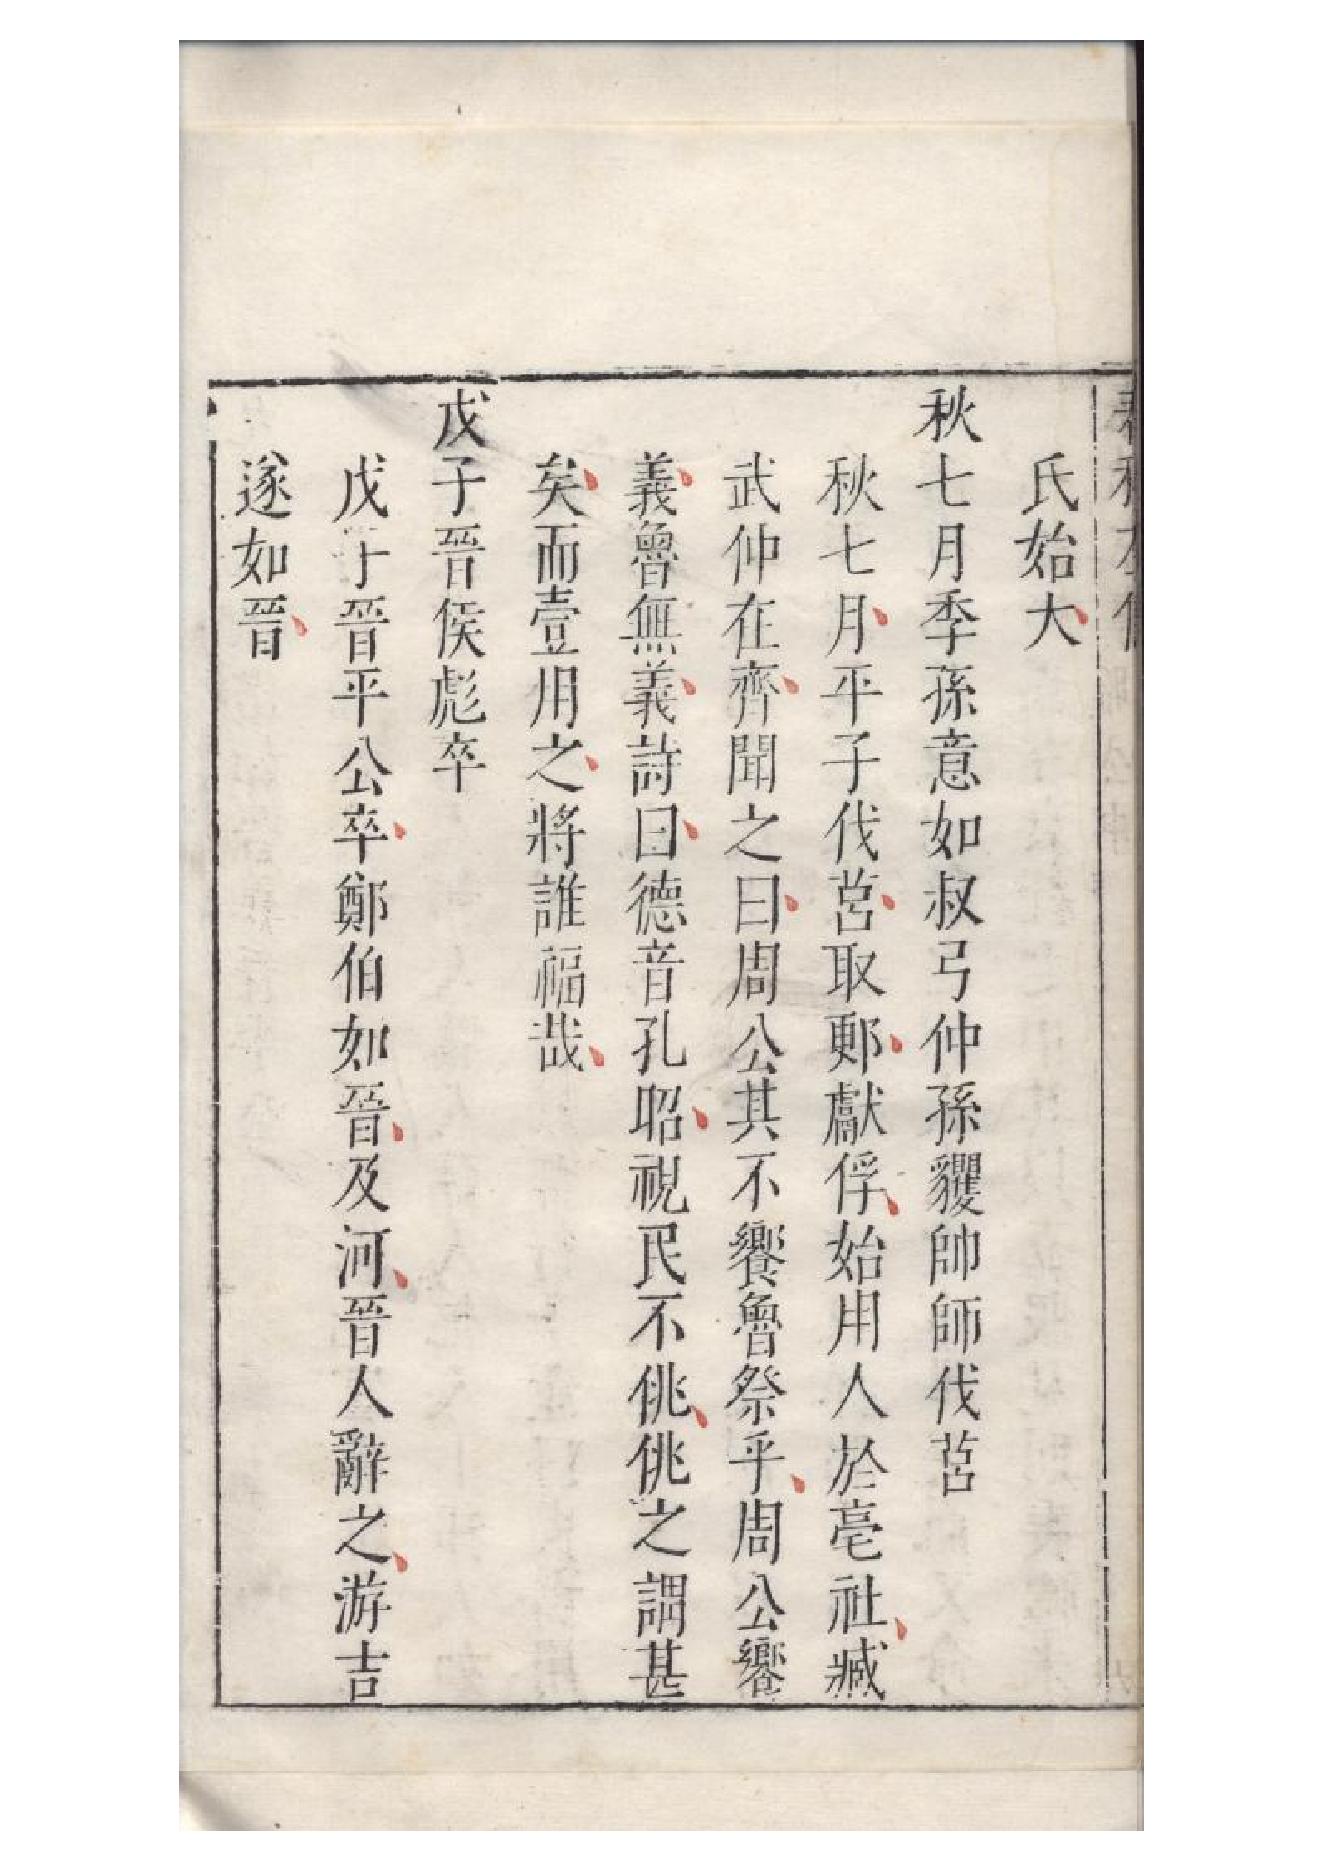 氏始大
秋七月季孫意如叔弓仲孫貜帥師伐莒
秋七月平子伐莒取郠獻俘始用人於亳社臧
武仲在齊聞之曰周公其不饗魯祭乎周公饗
義魯無義詩曰德音孔昭視民不佻佻之謂甚
矣而壹用之將誰福哉
戊子晉侯彪卒
戊子晉平公卒鄭伯如晉及河晉人辭之游吉
遂如晉